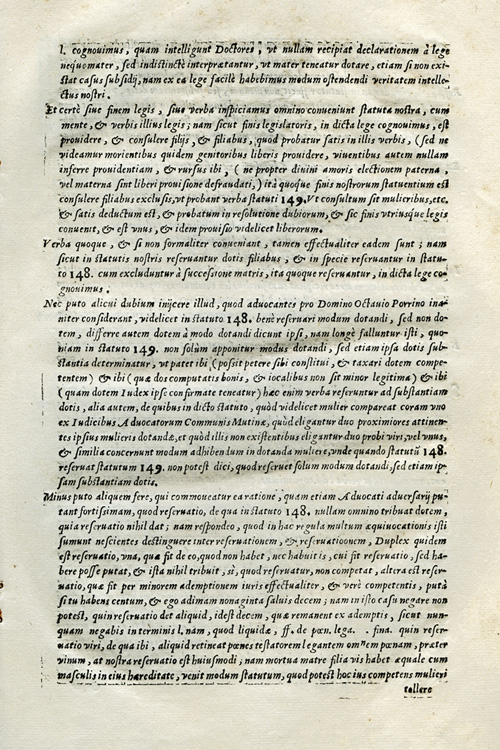 l. cognouimus, quam intelligunt Doctores, vt nullam recipiat declarationem à lege
nequomater, sed indistinctè interprætantur, vt mater teneatur dotare, etiam si non exi-
stat casus subsidij, nam ex ea lege facilè habebimus modum ostendendi veritatem intelle-
ctus nostri.
Et certè siue finem legis, siue verba inspiciamus omnino conueniunt statuta nostra, cum
mente, & verbis illius legis; nam sicut finis legislatoris, in dicta lege cognouimus, est
prouidere, & consulere filijs, & filiabus, quod probatur satis in illis verbis, (sed ne
videamur morientibus quidem genitoribus liberis prouidere, viuentibus autem nullam
inferre prouidentiam, & rursus ibi, ( ne propter diuini amoris electionem paterna,
vel materna sint liberi prouisione defraudati,) ità quoque finis nostrorum statuentium est
consulere filiabus exclusis, vt probant verba statuti 149. Vt consultum sit mulieribus, etc.
& satis deductum est, & probatum in resolutione dubiorum, & sic finis vtriusque legis
conuenit, & est vnus, & idem prouisio videlicet liberorum.
Verba quoque, & si non formaliter conueniant, tamen effectualiter eadem sunt; nam
sicut in statutis nostris reseruantur dotis filiabus, & in specie reseruantur in statu-
to 148. cum excluduntur à successione matris, ita quoque reseruantur, in dicta lege co-
gnouimus.
Nec puto alicui dubium inijcere illud, quod aduocantes pro Domino Octauio Porrino ina-
niter considerant, videlicet in statuto 148. benè reseruari modum dotandi, sed non do-
tem, differre autem dotem à modo dotandi dicunt ipsi, nam longè falluntur isti, quo-
niam in statuto 149. non solùm apponitur modus dotandi, sed etiam ipsa dotis sub-
stantia determinatur, vt patet ibi (possit petere sibi constitui, & taxari dotem compe-
tentem) & ibi (quæ dos computatis bonis, & iocalibus non sit minor legitima) & ibi
(quam dotem Iudex ipse confirmate teneatur) hæc enim verba referuntur ad substantiam
dotis, alia autem, de quibus in dicto statuto, quòd videlicet mulier compareat coram vno
ex Iudicibus Aduocatorum Communis Mutinæ, quòd eligantur duo proximiores attinen-
tes ipsius mulieris dotandæ, et quòd illis non existentibus eligantur duo probi viri, vel vnus,
& similia concernunt modum adhibendum in dotanda muliere, vnde quando statutũ 148.
reseruat statutum 149. non potest dici, quod reseruet solum modum dotandi, sed etiam ip-
sam substantiam dotis.
Minus puto aliquem fere, qui commoueatur ea ratione, quam etiam Aduocati aduersarij pu-
tant fortissimam, quod reseruatio, de qua in statuto 148. nullam omnino tribuat dotem,
quia reseruatio nihil dat; nam respondeo, quod in hac regula multum æquiuocationis isti
sumunt nescientes destinguere inter reseruationem, & reseruatioonem, Duplex quidem
est reseruatio, vna, quæ fit de eo, quod non habet, nec habuit is, cui fit reseruatio, sed ha-
bere posse putat, & ista nihil tribuit, sì, quod reseruatur, non competat, altera est reser-
uatio, quæ fit per minorem ademptionem iuris effectualiter, & verè competentis, putà
si tu habens centum, & ego adimam nonaginta saluis decem; nam in isto casu negare non
potest, quin reseruatio det aliquid, idest decem, quæ remanent ex ademptis, sicut nun-
quam negabis in terminis l. nam, quod liquidæ, ff. de pœn. lega. . fina. quin reser-
uatio viri, de qua ibi, aliquid retineat pœnes testatorem legantem omnem pœnam, præter
vinum, at nostra reseruatio est huiusmodi; nam mortua matre filia vis habet æquale cum
masculis in eius hæreditate, venit modum statutum, quod potest hoc ius competens mulieri
tollere